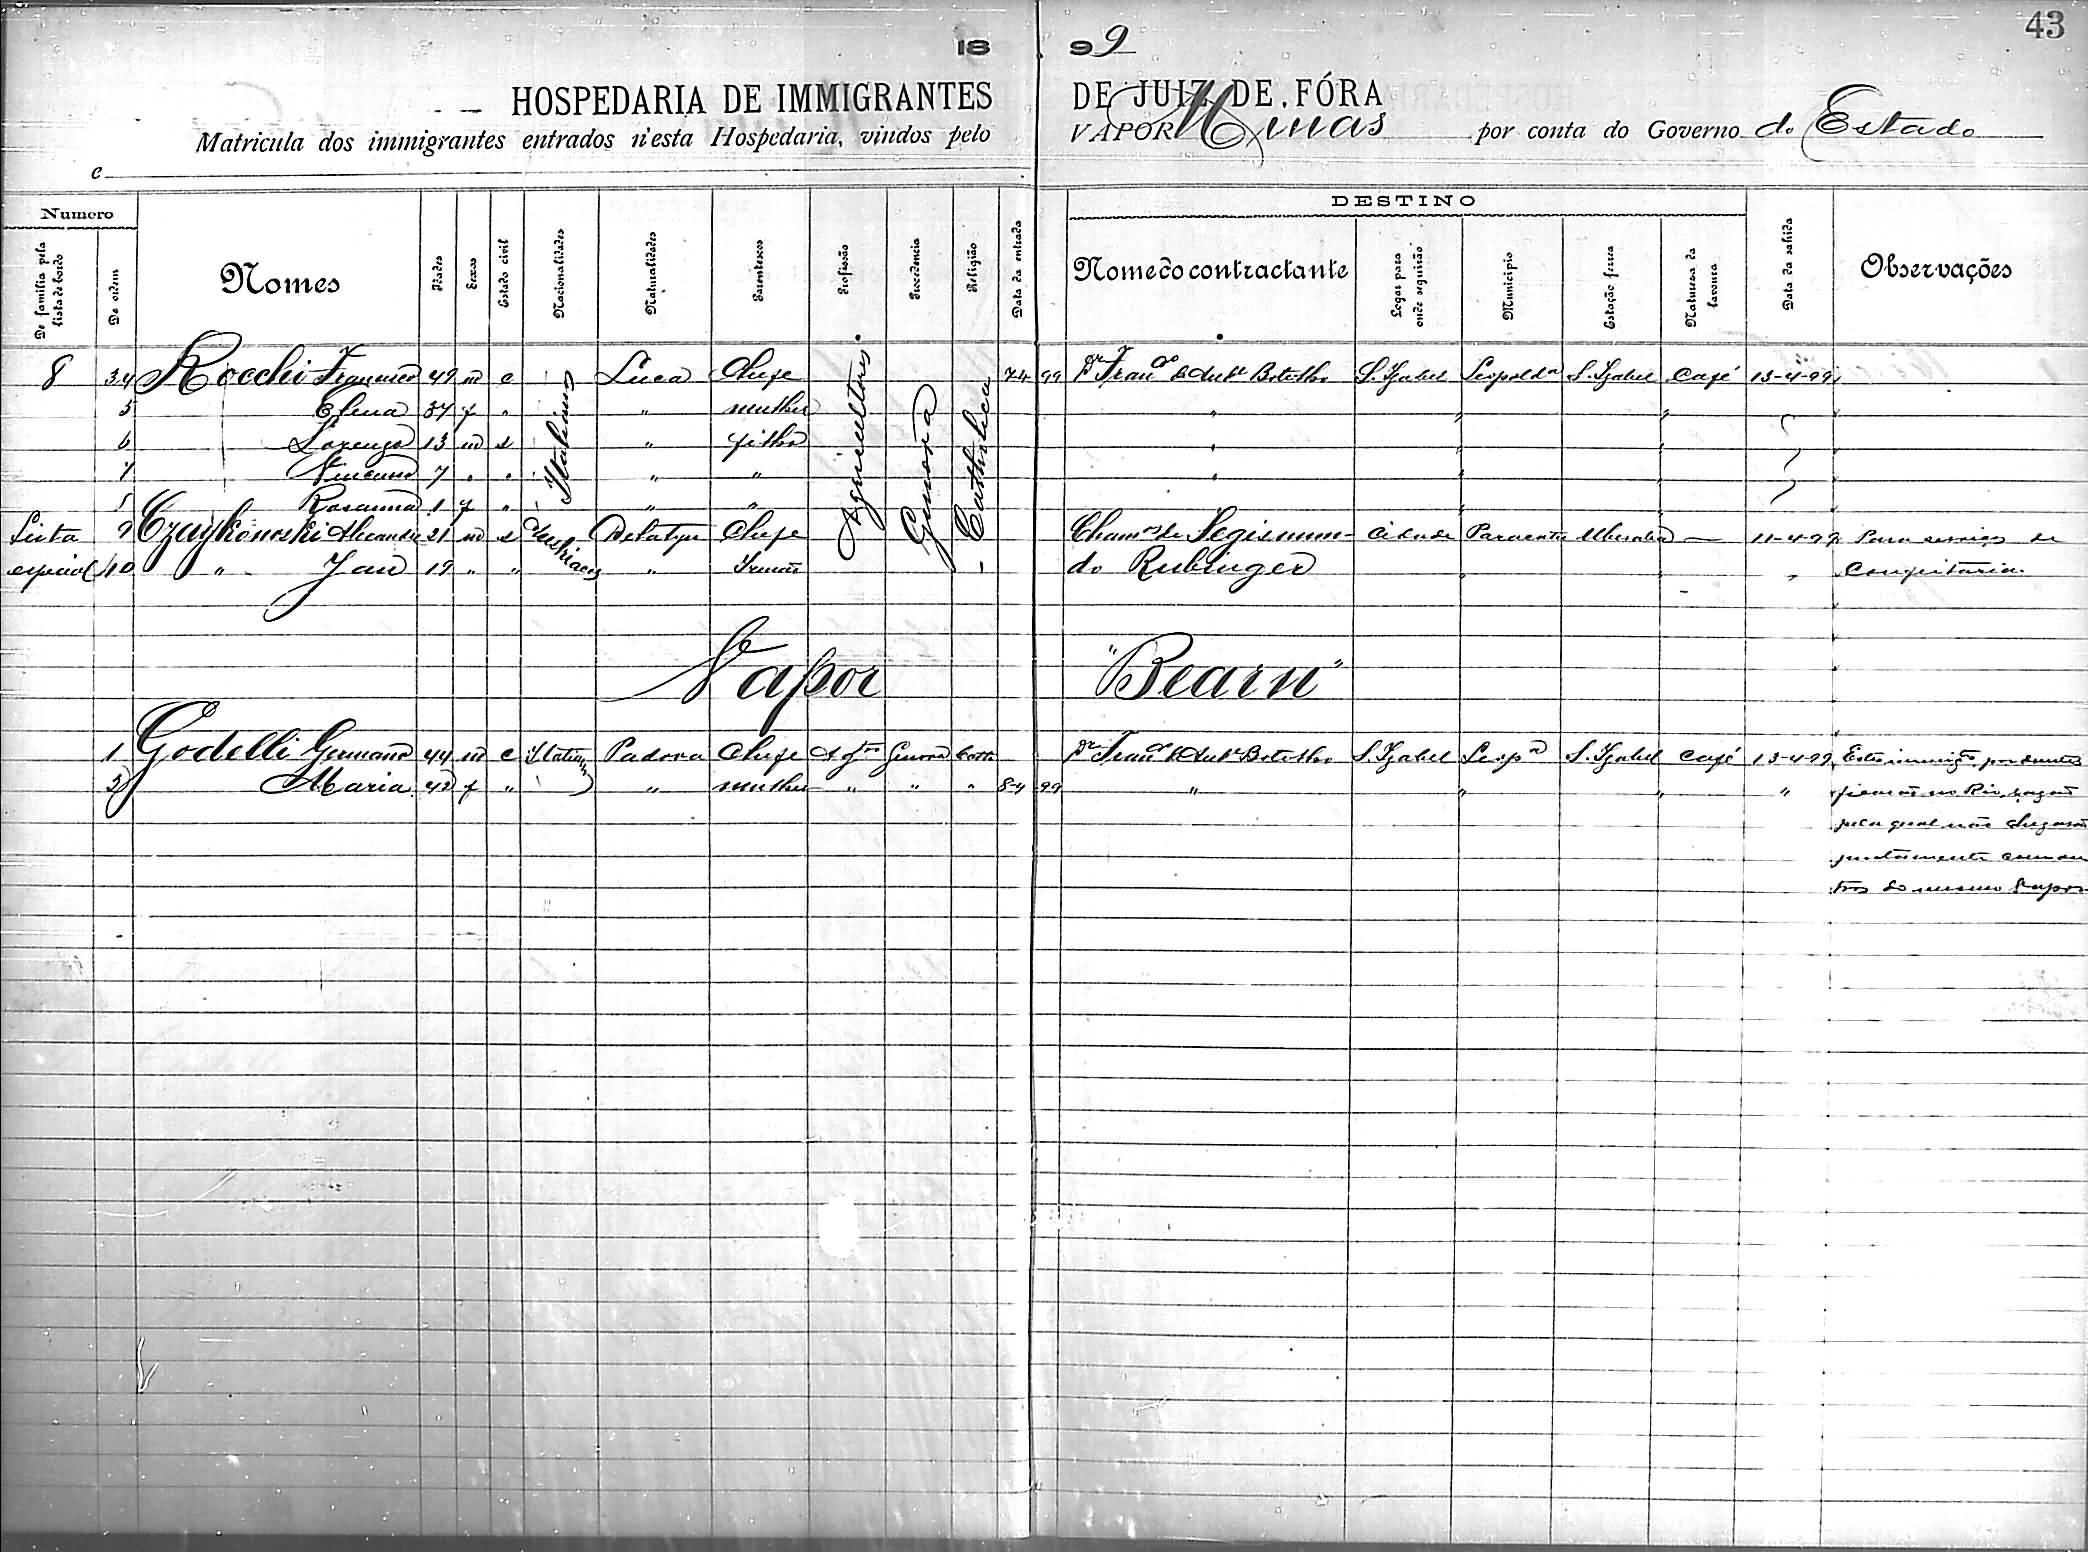 43
18 99
HOSPEDARIA DE IMMIGRANTES DE JUIZ DE FÓRA
Matricula dos immigrantes entrados n'esta Hospedaria, vindos pelo VAPOR Minas por conta do Governo do Estado
e
Numero
De familia pela lista de bordo
De ordem
Nomes
Idades
Sexos
Estado civil
Nacionalidades
Naturalidades
Parentescos
Profissão
Procedencia
Religião
Data da entrada
DESTINO
Nome do contractante
Logar para onde seguirão
Municipio
Estação ferrea
Natureza da lavoura
Data da sahida
Observações
8 34 Rocchi Francisco 49 m c Italianos Luca Chefe Agricultores Genova Catholica 7 4 99 Dr Franco de Anto Botelho S. Izabel Leopolda S. Izabel Café 13-4-99
5 Elena 37 f " " mulher " " "
6 Lorenzo 13 m s " filho " " "
7 7 " " " " " "
Rosanna 1 f " " " "
Lista 9 Czaykowski 21 m s Delatyn Chefe Segismun- Cidade Uberaba — 11-4-99 Para serviços de
especial 40 " Jan 19 " " " Irmão do Rubinger " " " " Confeitaria.
Vapor "Bearn"
1 Godelli Germano 44 m c Padova Chefe Agres Genova Cath Dr Franco de Anto Botelho S. Izabel Leopa S. Izabel Café 13-4-99 por doentes
2 Maria 42 f " " mulher " " " 8-4 99 " " " " ficarão no Rio, razão
pela qual não chegarão
juntamente com ou-
tros do mesmo Vapor